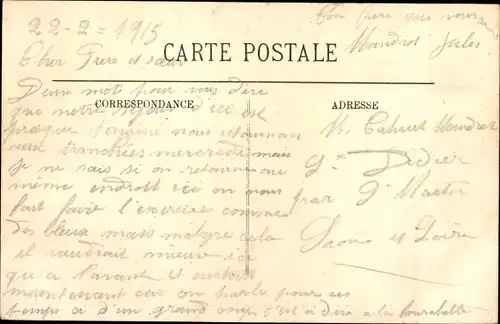 22-2-1915
Ton frère qui vous
Mandrot Jules
CARTE POSTALE
Cher Frère et sœur
CORRESPONDANCE
Deux mots pour vous dire
que notre séjour d'ici est
presque terminé nous retournons
aux tranchées mercredi mais
je ne sais si on retourne au
même endroit ici on nous
fait faire l'exercice comme
des bleux mais malgré cela
il vaudrait mieux ici
qu a l'avant et surtout
maintenant car on parle pour ces
temps si d'un grand coup c'est a dire a la
ADRESSE
M. Mandrot
St Didier
par St Martin
Saone et Loire